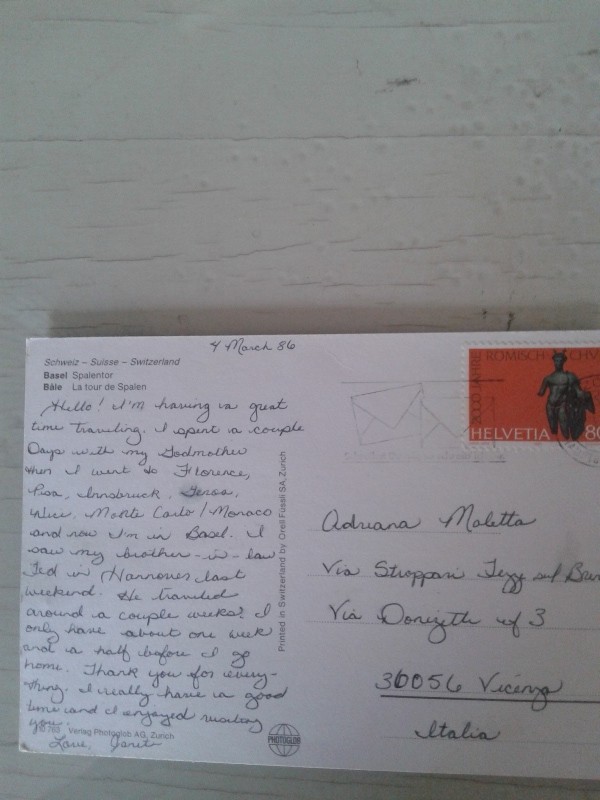 4 March 86
Schweiz – Suisse – Switzerland
Basel Spalentor
Bâle La tour de Spalen
Hello! I'm having a great
time traveling. I spent a couple
Days with my Godmother
then I went to Florence,
Pisa, Innsbruck,
Nice, Monte Carlo/Monaco
and now I'm in Basel. I
saw my brother-in-law
Ted in Hannover last
weekend. He traveled
around a couple weeks? I
only have about one week
and a half before I go
home. Thank you for every-
thing. I really have a good
time and I enjoyed
you.
Love, Janet
Verlag Photoglob AG, Zurich
Printed in Switzerland by Orell Füssli SA, Zurich
PHOTOGLOB
RÖMISCH
HELVETIA 80
Adriana Maletta
Via Stroppari Tezze sul
Via 3
36056 Vicenza
Italia